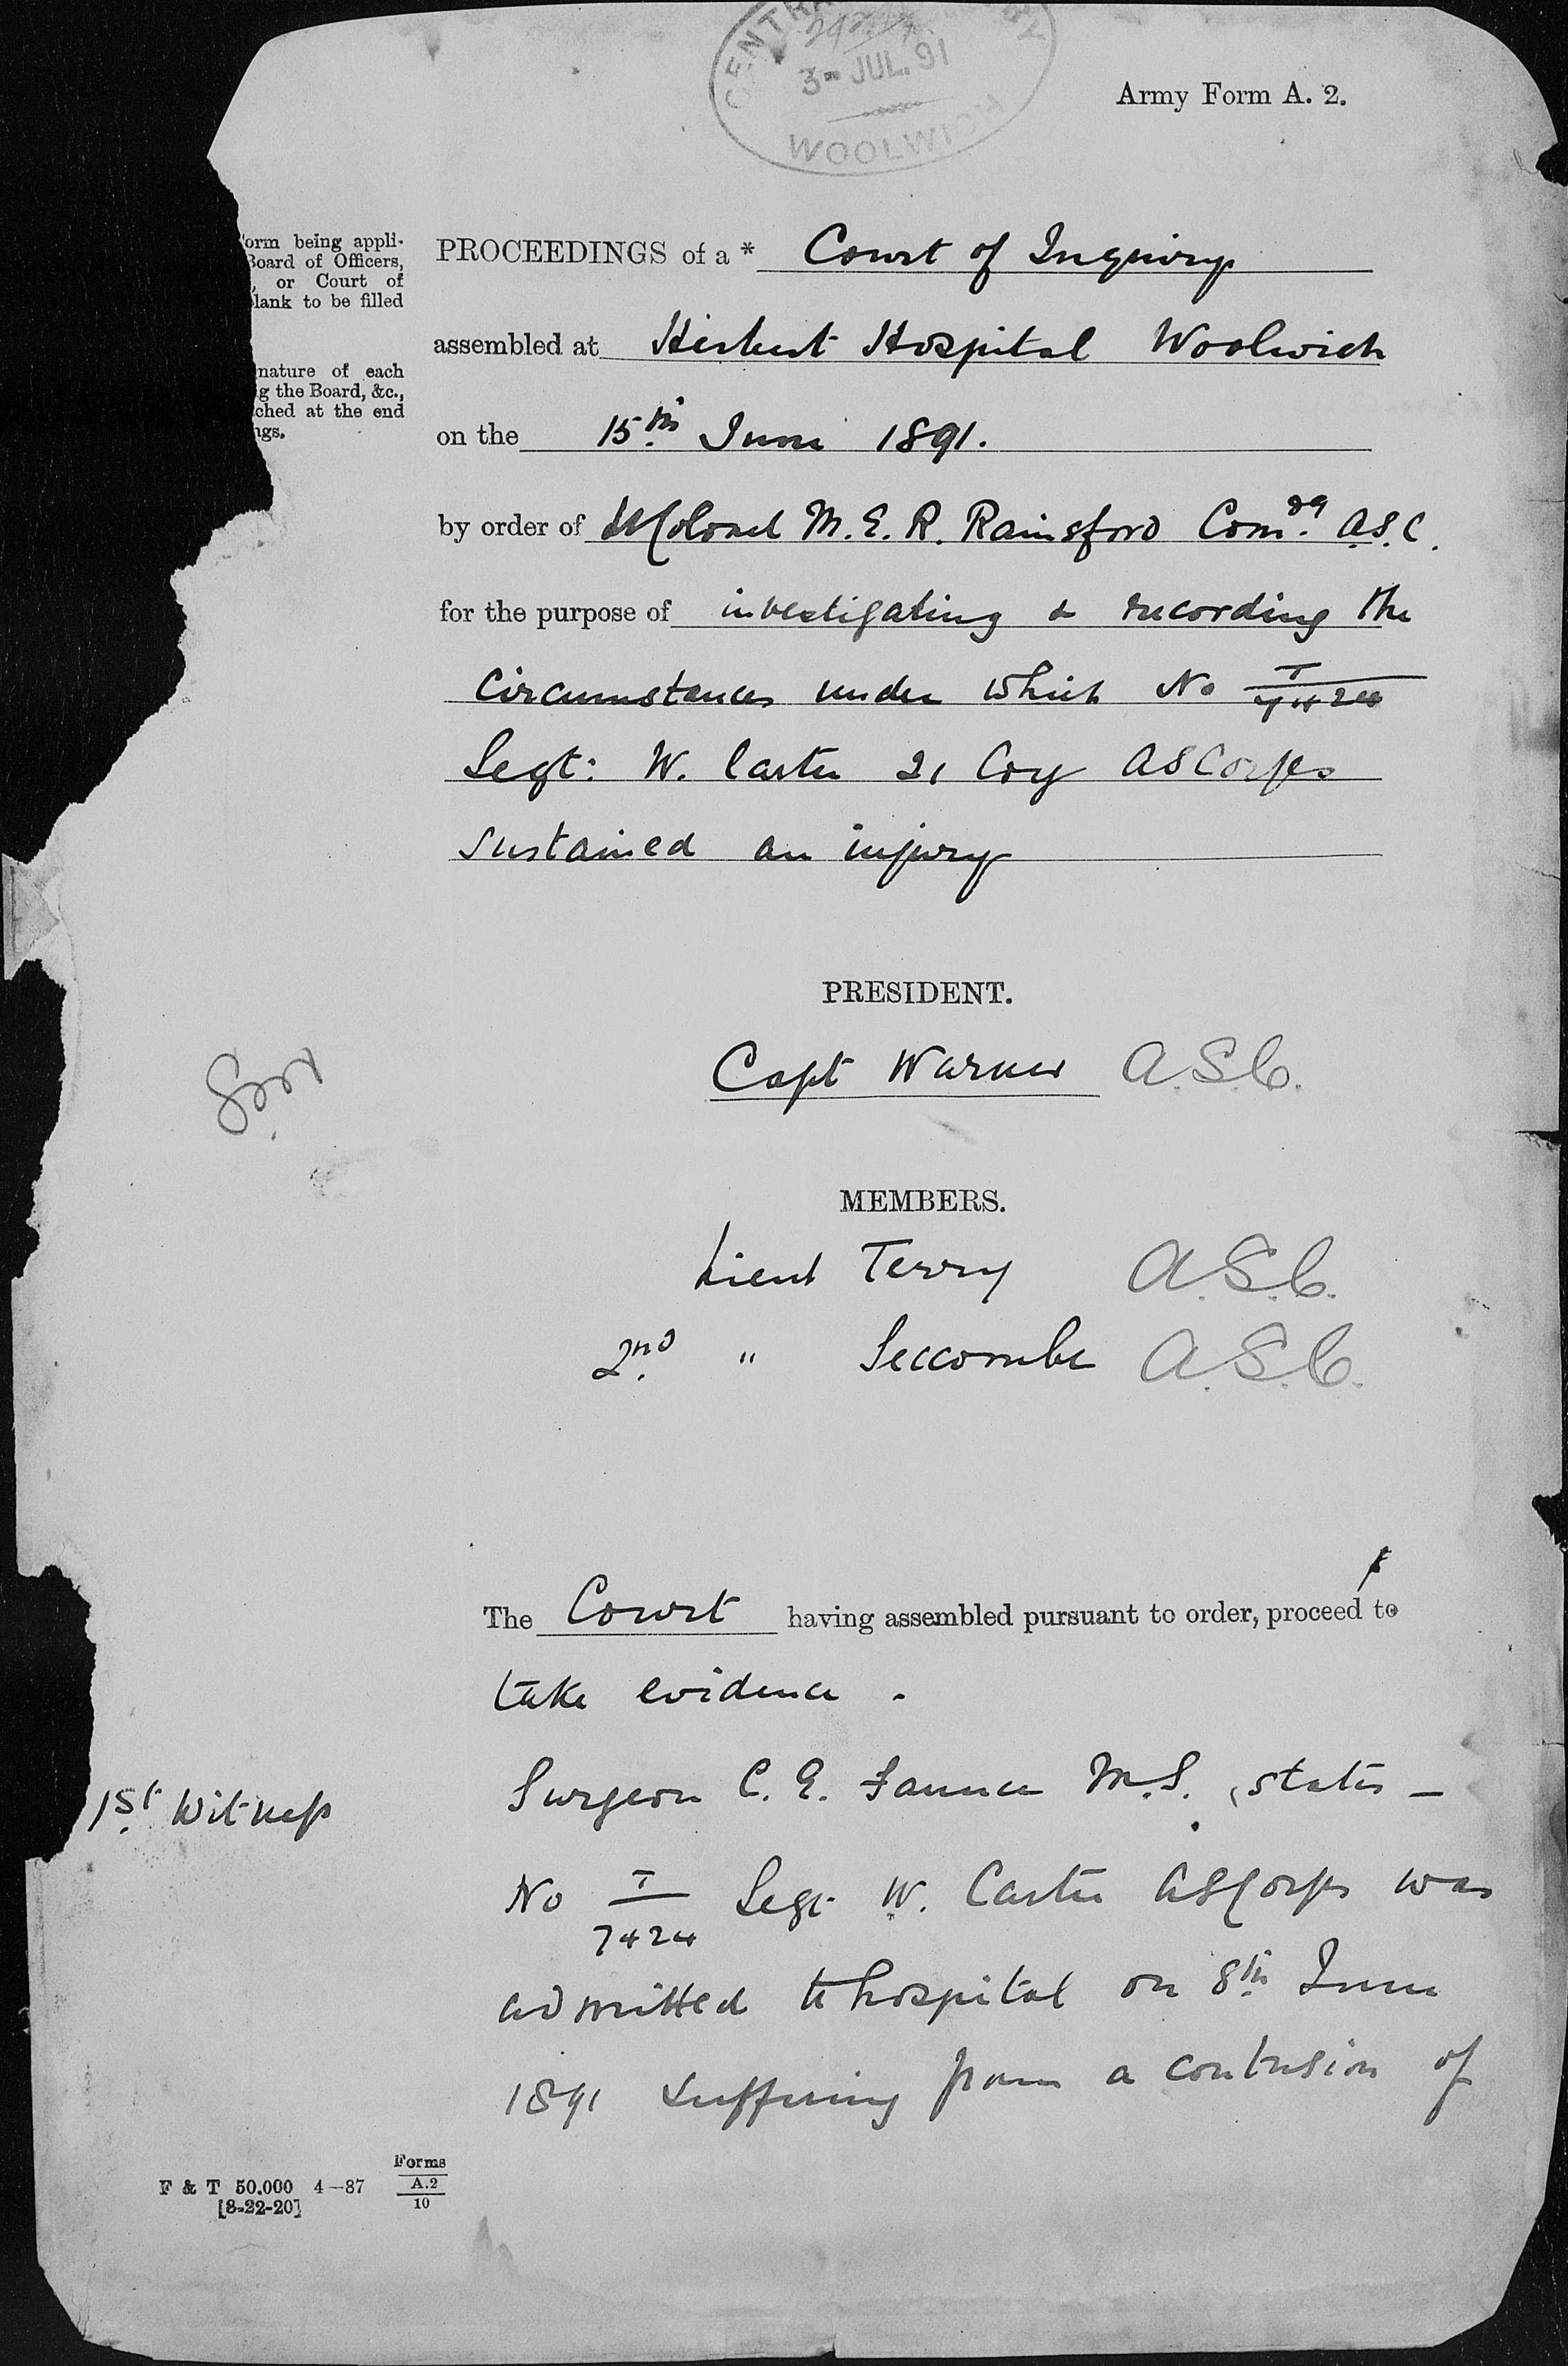 3- JUL. 91
WOOLWICH
Army Form A. 2.
orm being appli-
Board of Officers,
, or Court of
lank to be filled
nature of each
g the Board, &c.,
ched at the end
ngs.
PROCEEDINGS of a * Court of Inquiry
assembled at Herbert Hospital Woolwich
on the 15th June 1891.
by order of Colonel M. E. R. Rainsford Comdg A.S.C.
for the purpose of investigating & recording the
circumstances under which No T/7424
Sergt: W. Carter 21 Coy ASCorps
sustained an injury
PRESIDENT.
Capt Warner A.S.C.
MEMBERS.
Lieut Terry A.S.C.
2nd " Seccombe A.S.C.
The Court having assembled pursuant to order, proceed to
take evidence .
1st Witness
Surgeon C. E. Faunce M.S., states –
No T/7424 Sergt W. Carter ASCorps was
admitted to hospital on 8th June
1891 suffering from a contusion of
F & T 50.000 4—87 Forms A.2 10
[8-22-20]